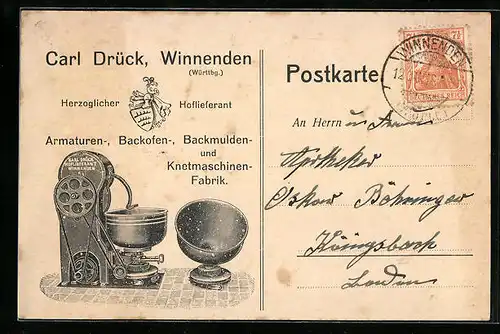 Carl Drück, Winnenden
(Württbg.)
Herzoglicher Hoflieferant
Armaturen-, Backofen-, Backmulden-
und
Knetmaschinen-
Fabrik.
CARL DRÜCK
HOFLIEFERANT
WINNENDEN
Postkarte
WINNENDEN
7½
An Herrn
Apotheker
Oskar Böhringer
Königsbach
Baden